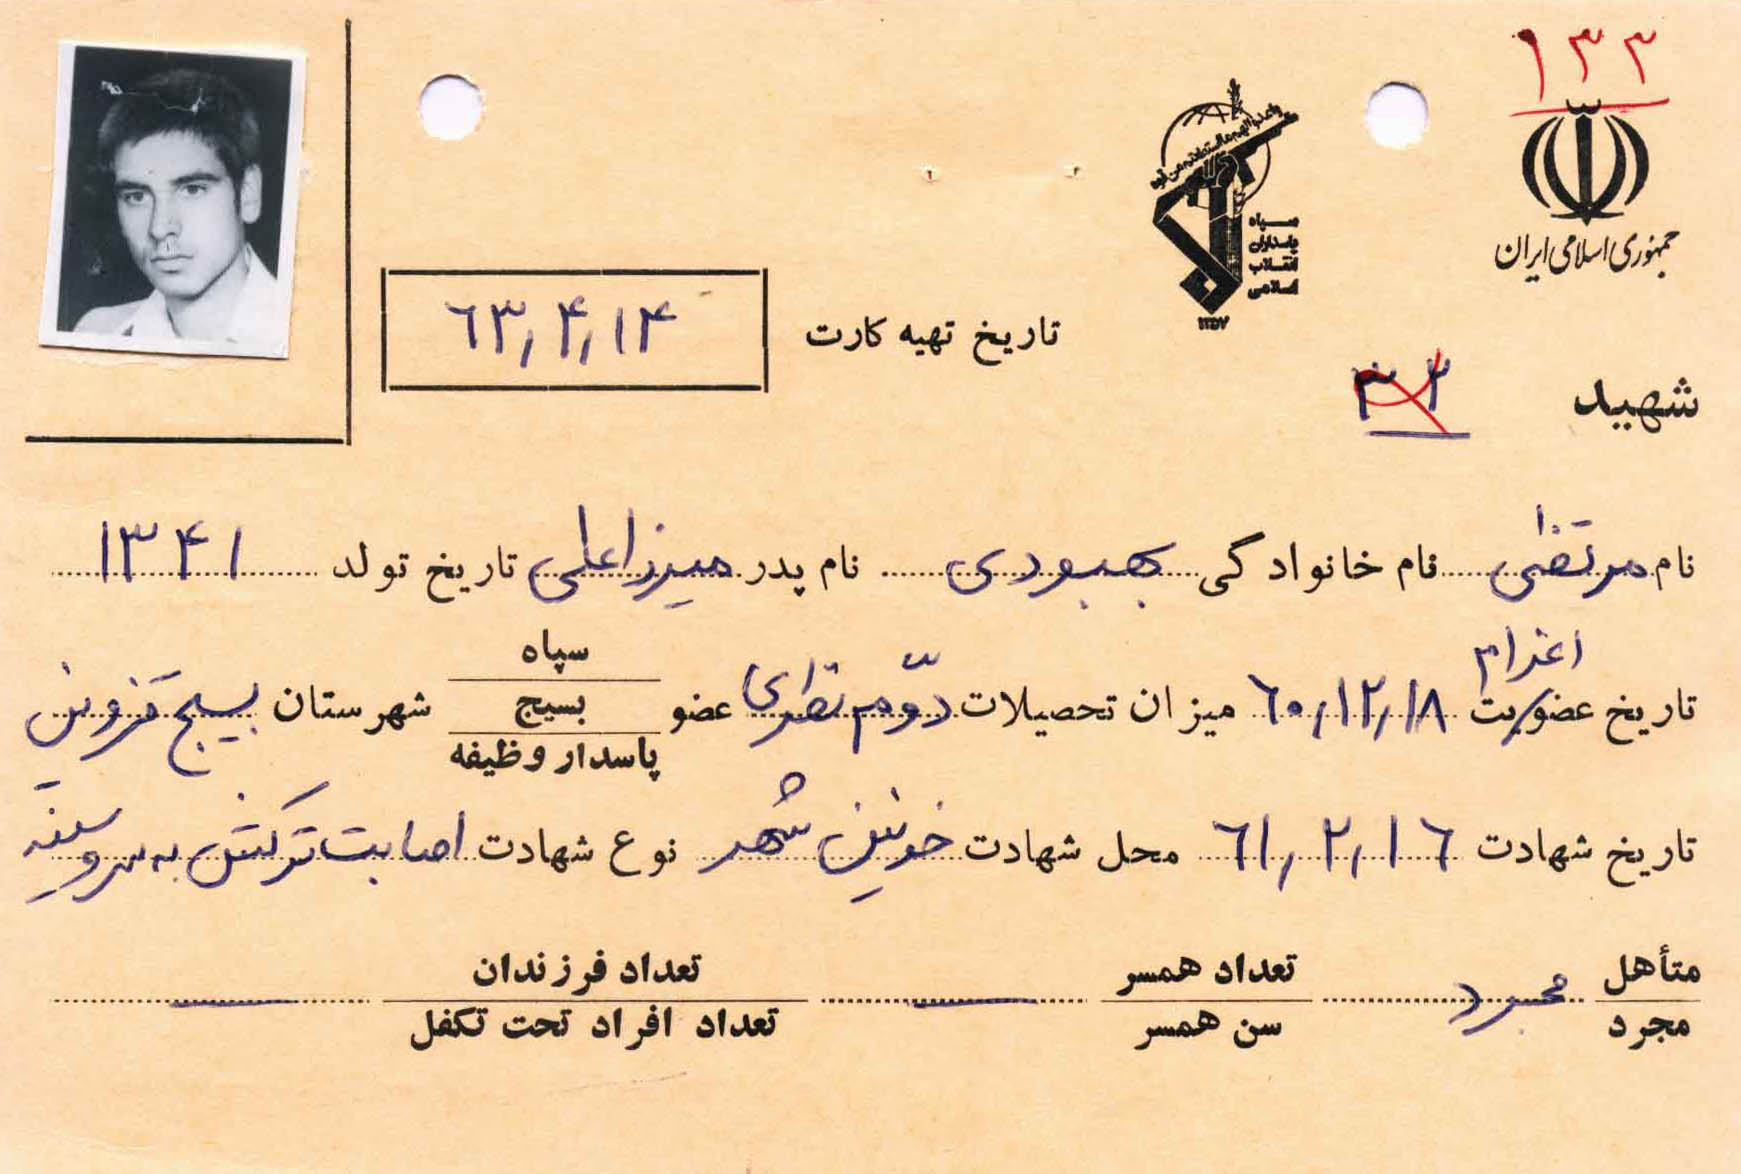 ۱۳۳
جمهوری اسلامی ایران
سپاه
پاسداران
انقلاب
اسلامی
۱۳۵۷
تاریخ تهیه کارت ۶۳٫۴٫۱۴
شهید ۳۲
نام مرتضی نام خانوادگی بهبودی نام پدر میرزاعلی تاریخ تولد ۱۳۴۱
اعزام
تاریخ عضویت ۶۰٫۱۲٫۱۸ میزان تحصیلات دوّم نظری عضو سپاه بسیج پاسدار وظیفه شهرستان بسیج قزوین
تاریخ شهادت ۶۱٫۲٫۱۶ محل شهادت خونین شهر نوع شهادت اصابت ترکش به سر و سینه
متأهل مجرد مجرد تعداد همسر سن همسر — تعداد فرزندان تعداد افراد تحت تکفل —